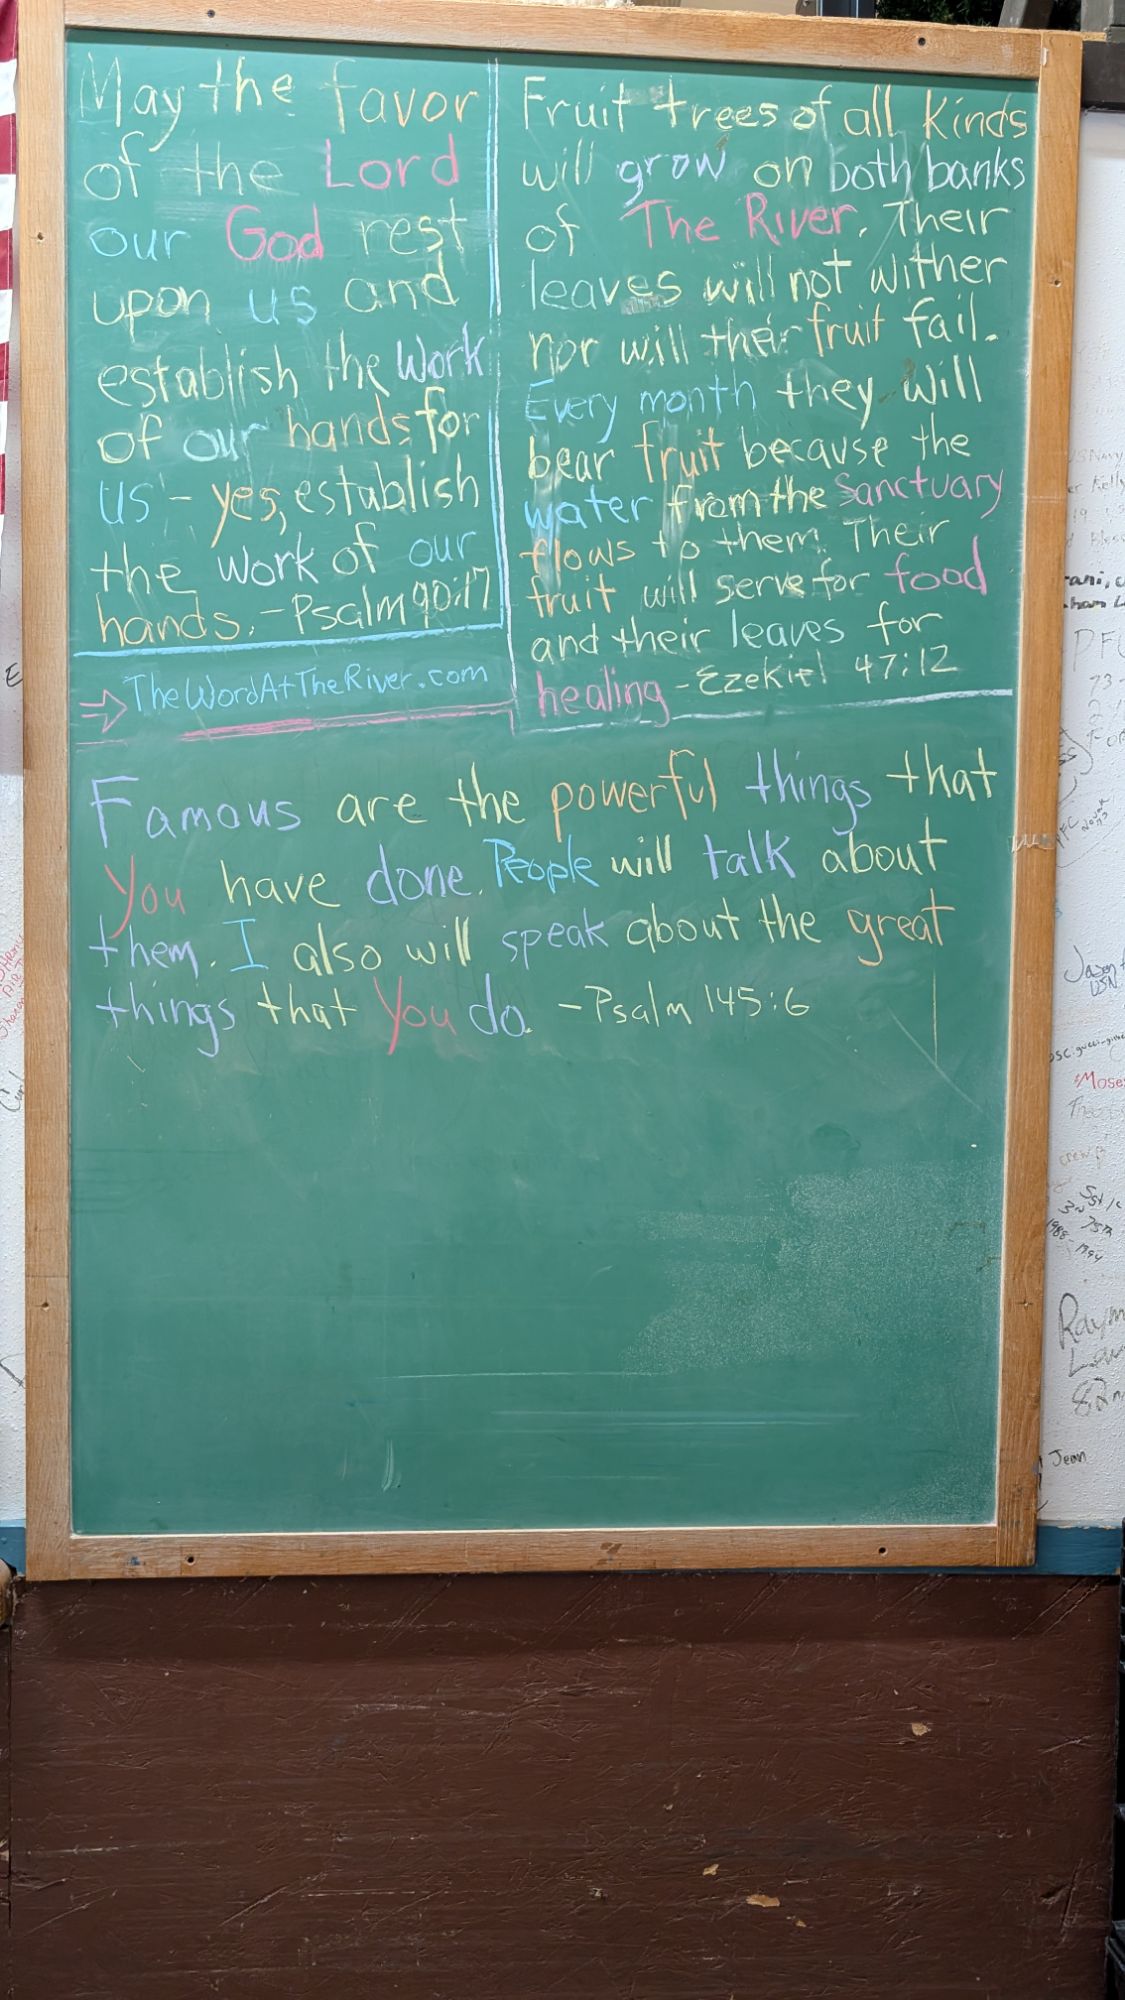 May the favor
of the Lord
our God rest
upon us and
establish the work
of our hands for
us - yes, establish
the work of our
hands. - Psalm 90:17
TheWordAtTheRiver.com
Fruit trees of all kinds
will grow on both banks
of The River. Their
leaves will not wither
nor will their fruit fail.
Every month they will
bear fruit because the
water from the Sanctuary
flows to them. Their
fruit will serve for food
and their leaves for
healing - Ezekiel 47:12
Famous are the powerful things that
You have done. People will talk about
them. I also will speak about the great
things that You do. - Psalm 145:6
USNavy
Kelly
PFC
Jason
USN
Moses
1988-1994
Jean